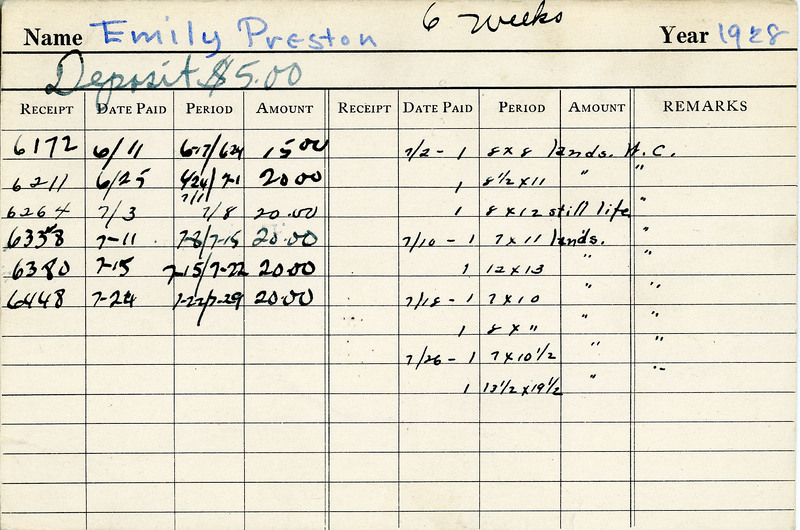 6 Weeks
Name Emily Preston Year 1928
Deposit $5.00
RECEIPT DATE PAID PERIOD AMOUNT RECEIPT DATE PAID PERIOD AMOUNT REMARKS
6172 6/11 6-17/6-24 15 00 7/2 - 1 8 x 8 lands. W.C.
6211 6/25 6/24/7-1 20 00 1 8 1/2 x 11 " "
7/1
6264 7/3 7/8 20.00 1 8 x 12 still life "
6338 7-11 7-8/7-15 20.00 7/10 - 1 7 x 11 lands. "
6380 7-15 7-15/7-22 20.00 1 12 x 13 " "
6448 7-24 7-22/7-29 20.00 7/18 - 1 7 x 10 " "
1 8 x " " "
7/26 - 1 7 x 10 1/2 " "
1 13 1/2 x 19 1/2 " "